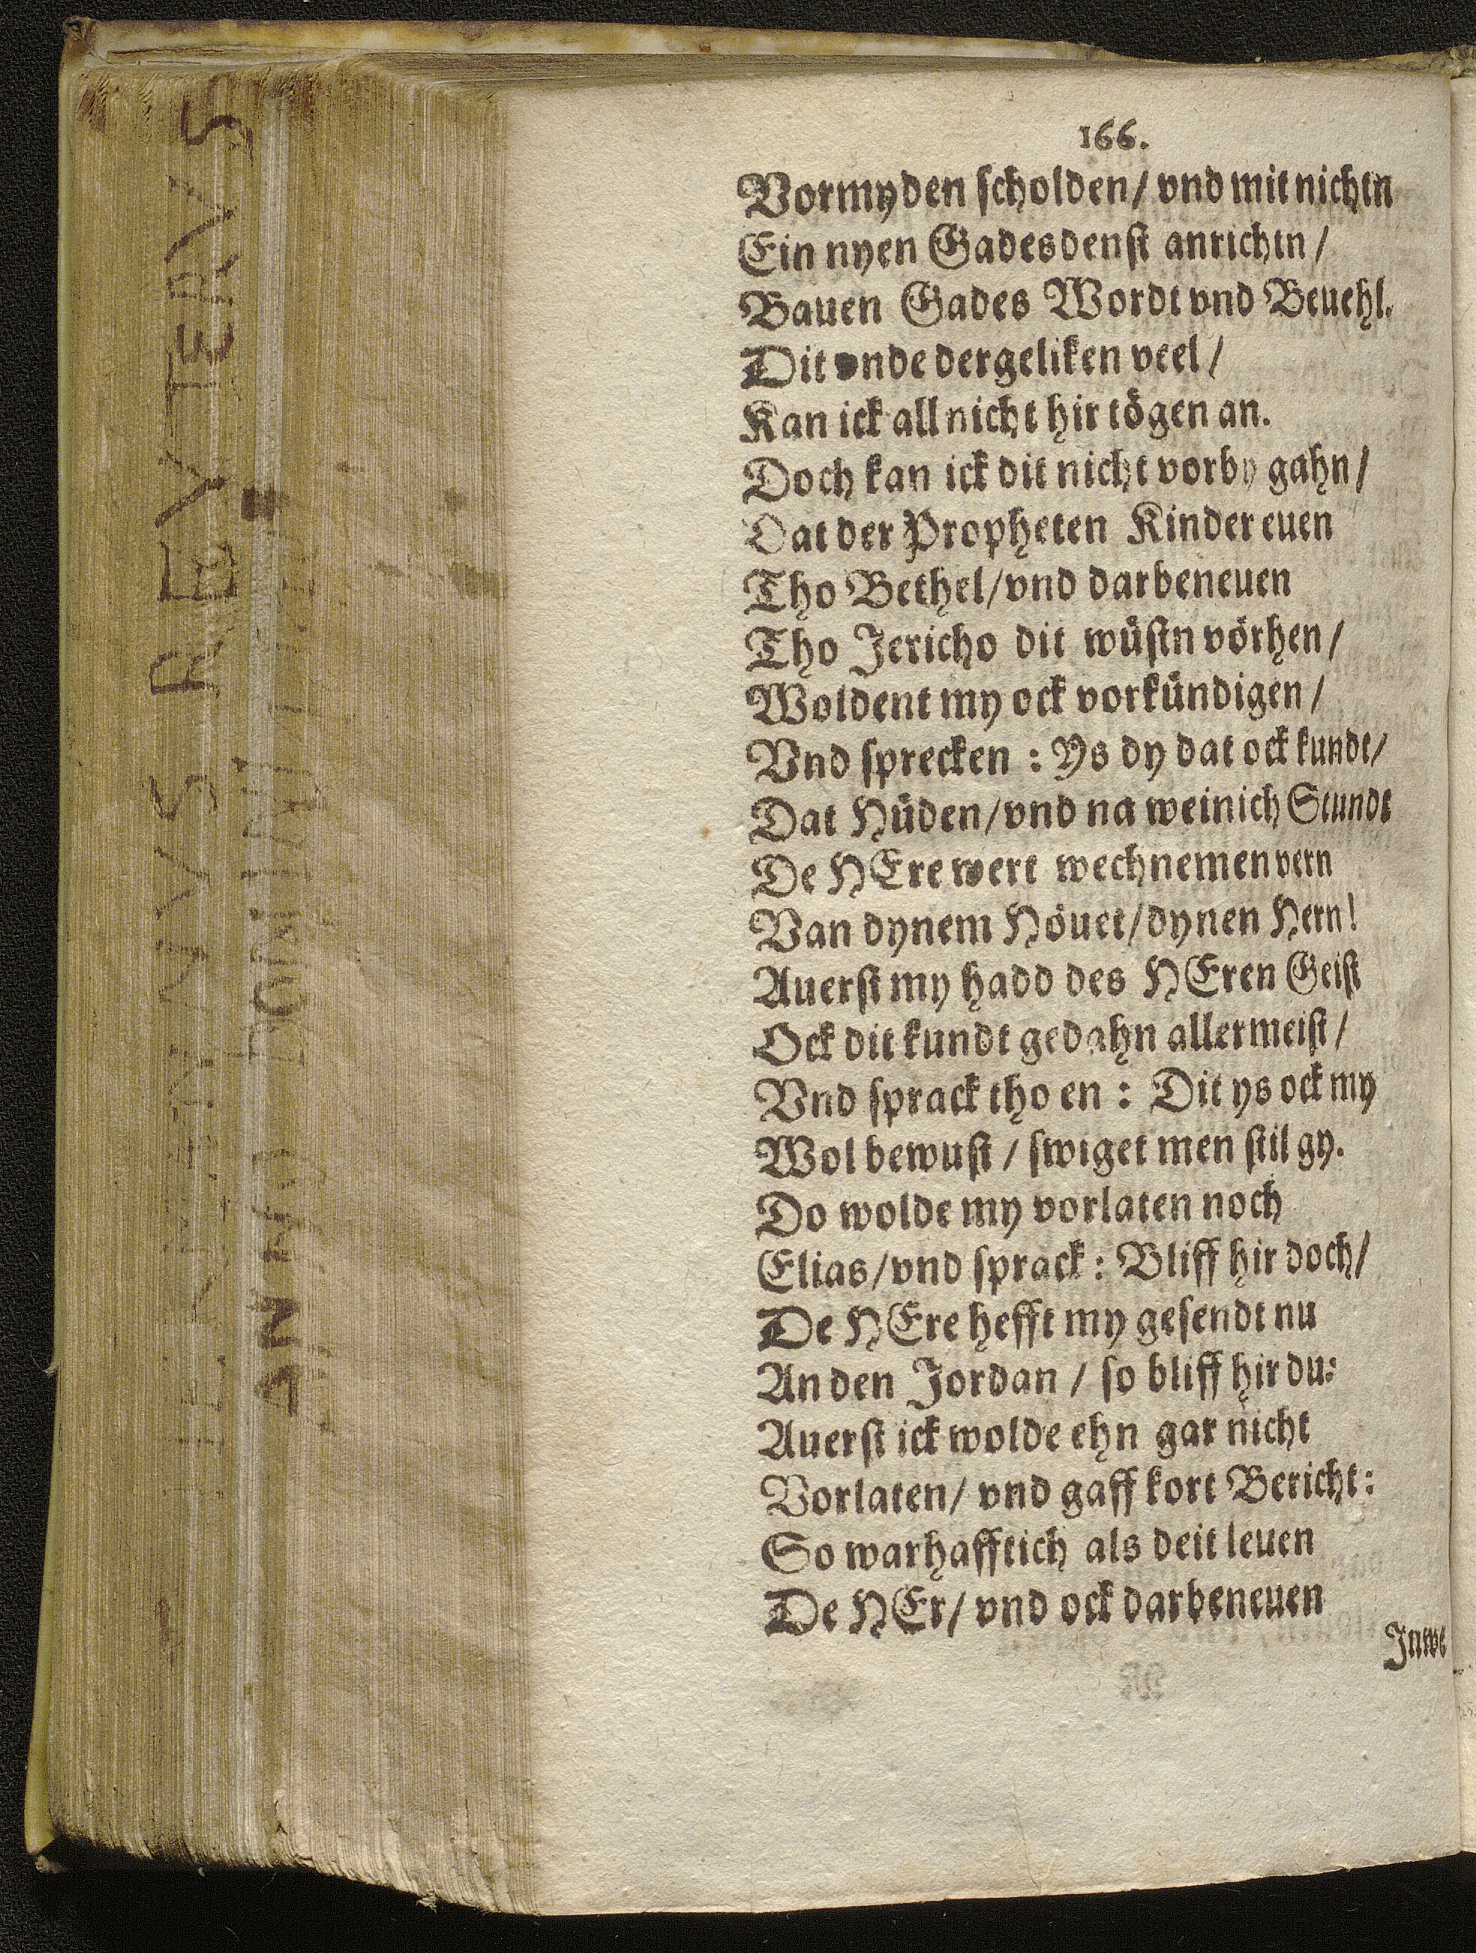 166.
Vormyden scholden/ vnd mit nichtn
Ein nyen Gadesdenst anrichtn/
Bauen Gades Wordt vnd Beuehl.
Dit vnde dergeliken veel/
Kan ick all nicht hir tögen an.
Doch kan ick dit nicht vorby gahn/
Dat der Propheten Kinder euen
Tho Bethel/vnd darbeneuen
Tho Jericho dit wüstn vörhen/
Woldent my ock vorkündigen/
Vnd sprecken : Ys dy dat ock kundt/
Dat Hüden/vnd na weinich Stundt
De HEre wert wechnemen vern
Van dynem Höuet/dynen Hern!
Auerst my hadd des HEren Geist
Ock dit kundt gedahn allermeist/
Vnd sprack tho en : Dit ys ock my
Wol bewust / swiget men stil gy.
Do wolde my vorlaten noch
Elias/vnd sprack : Bliff hir doch/
De HEre hefft my gesendt nu
An den Jordan / so bliff hir du:
Auerst ick wolde ehn gar nicht
Vorlaten/ vnd gaff kort Bericht:
So warhafftich als deit leuen
De HEr/ vnd ock darbeneuen
Juwe
REVTERVS